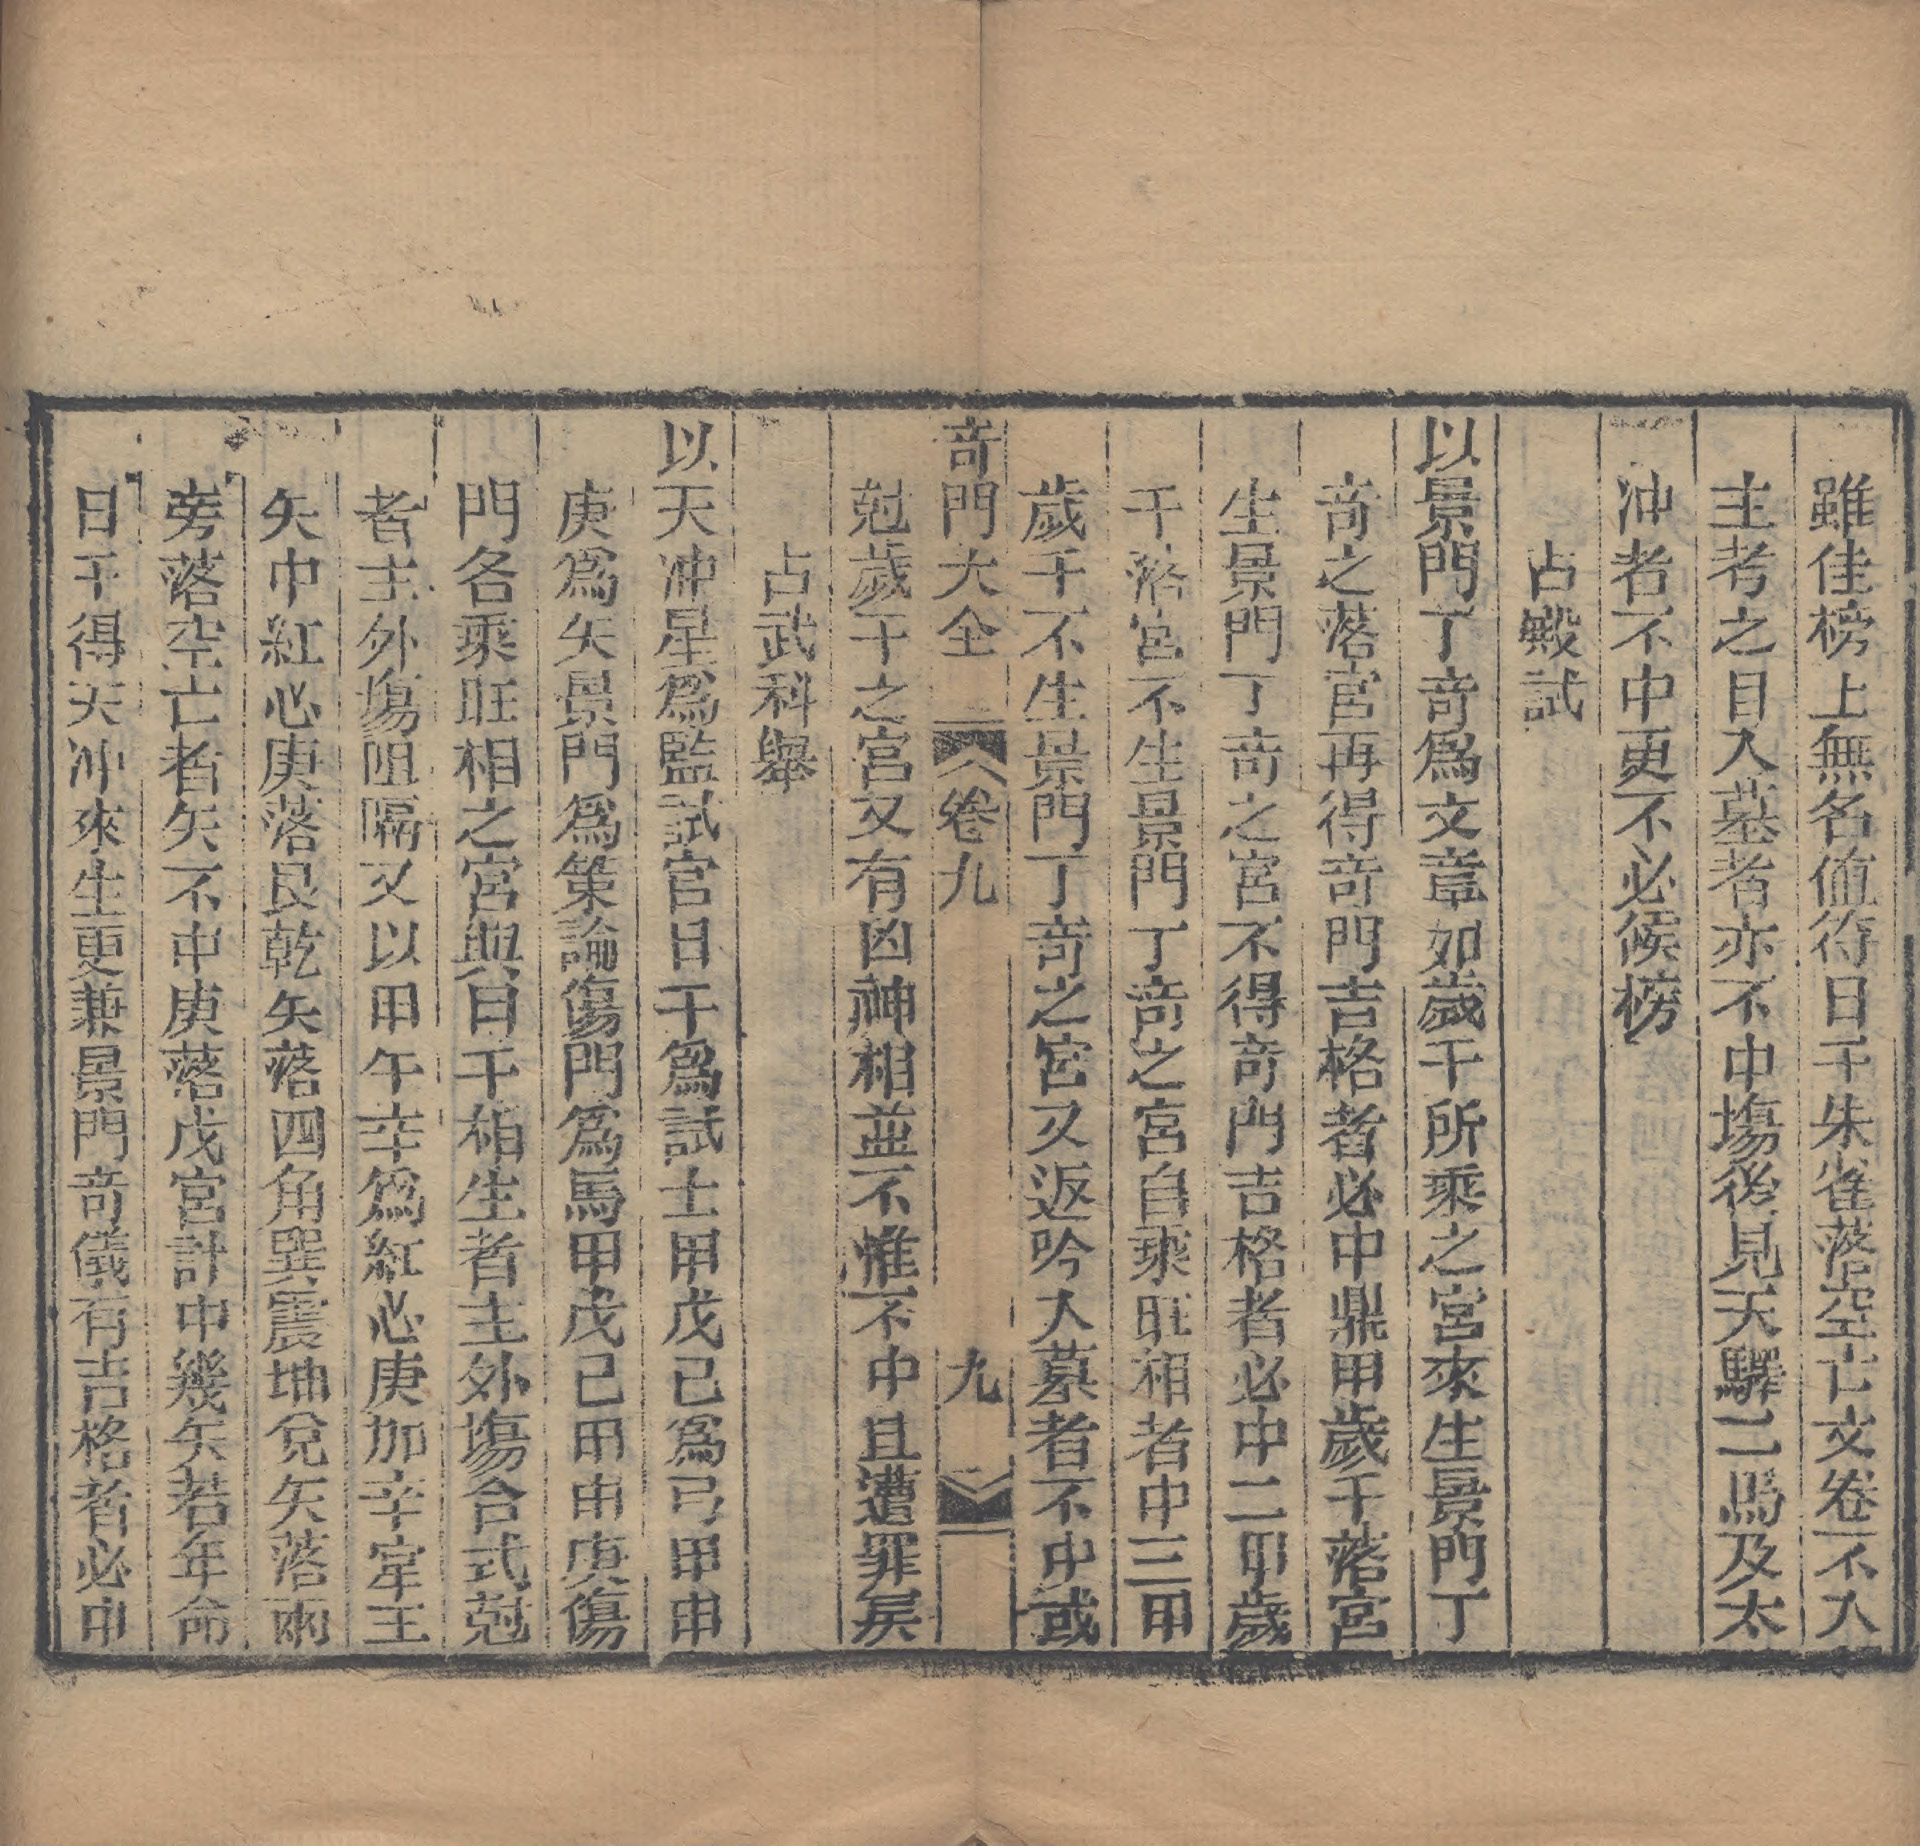 雖佳榜上無名值符日干朱雀落空亡文卷不入
主考之目入墓者亦不中塲後見天驛二馬及太
沖者不中更不必候榜
占殿試
以景門丁竒爲文章如歲干所乘之宮來生景門丁
竒之落宮再得竒門吉格者必中鼎甲歲干落宮
生景門丁竒之宮不得竒門吉格者必中二甲歲
干落宮不生景門丁竒之宮自乘旺相者中三甲
歲干不生景門丁竒之宮又返吟入墓者不中或
尅歲干之宮又有凶神相並不惟不中且遭罪戾
竒門大全 卷九 九
占武科舉
以天冲星爲監試官日干爲試士甲戊己爲弓甲申
庚爲矢景門爲策論傷門爲馬甲戊己甲申庚傷
門各乘旺相之宮與日干相生者主外塲合式尅
者主外塲阻隔又以甲午辛爲紅心庚加辛宮主
矢中紅心庚落艮乾矢落四角巽震坤兌矢落兩
旁落空亡者矢不中庚落戊宮計中幾矢若年命
日干得天冲來生更兼景門竒儀有吉格者必中